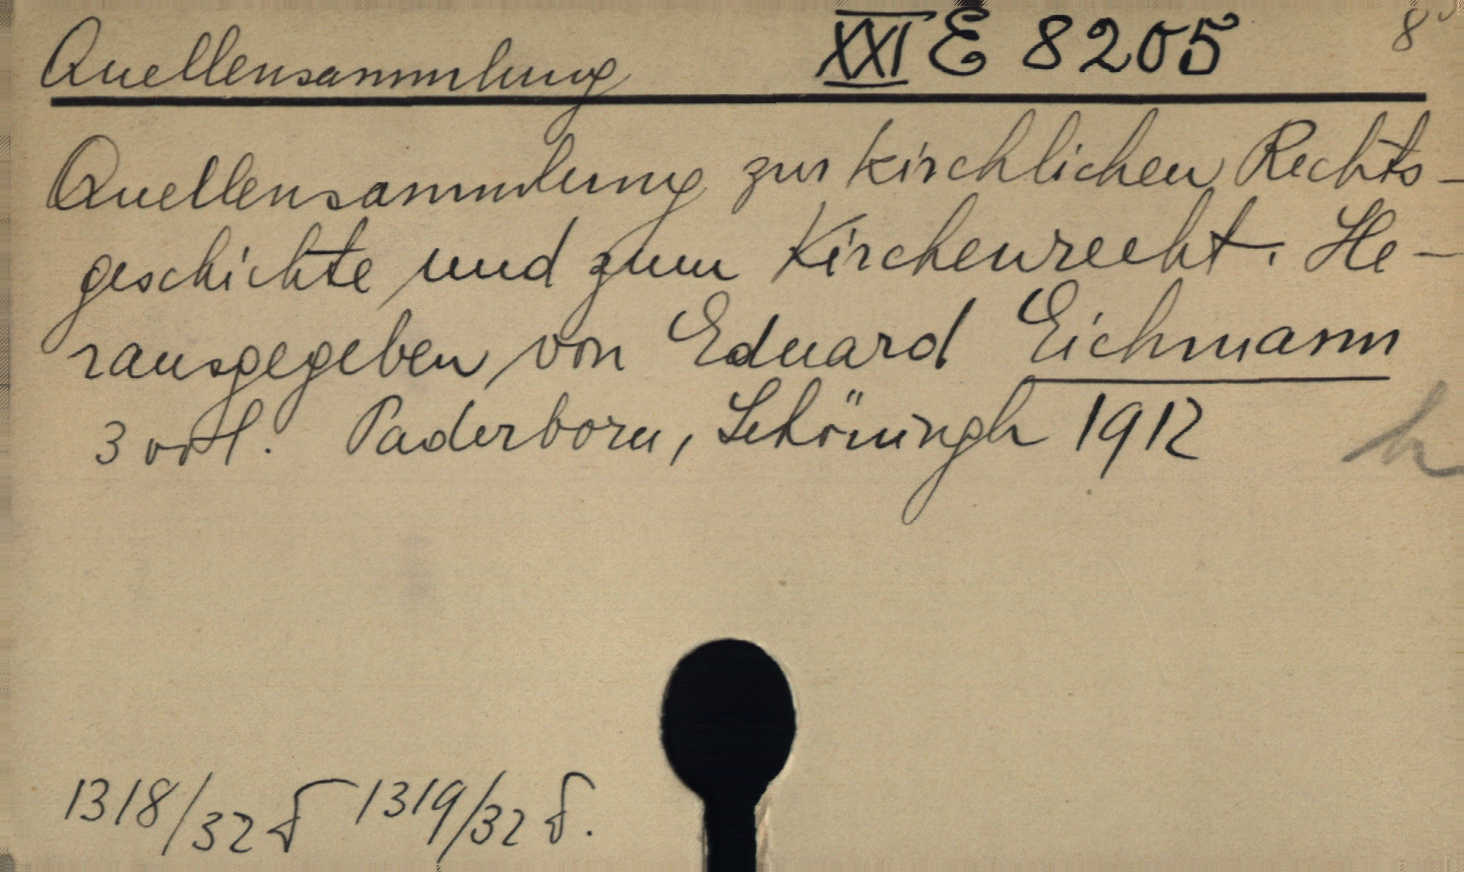 Quellensammlung XXI E 8205 8°
Quellensammlung zur kirchlichen Rechts-
geschichte und zum Kirchenrecht. He-
rausgegeben von Eduard Eichmann
3 vol. Paderborn, Schöningh 1912
h
1318/32 1319/32